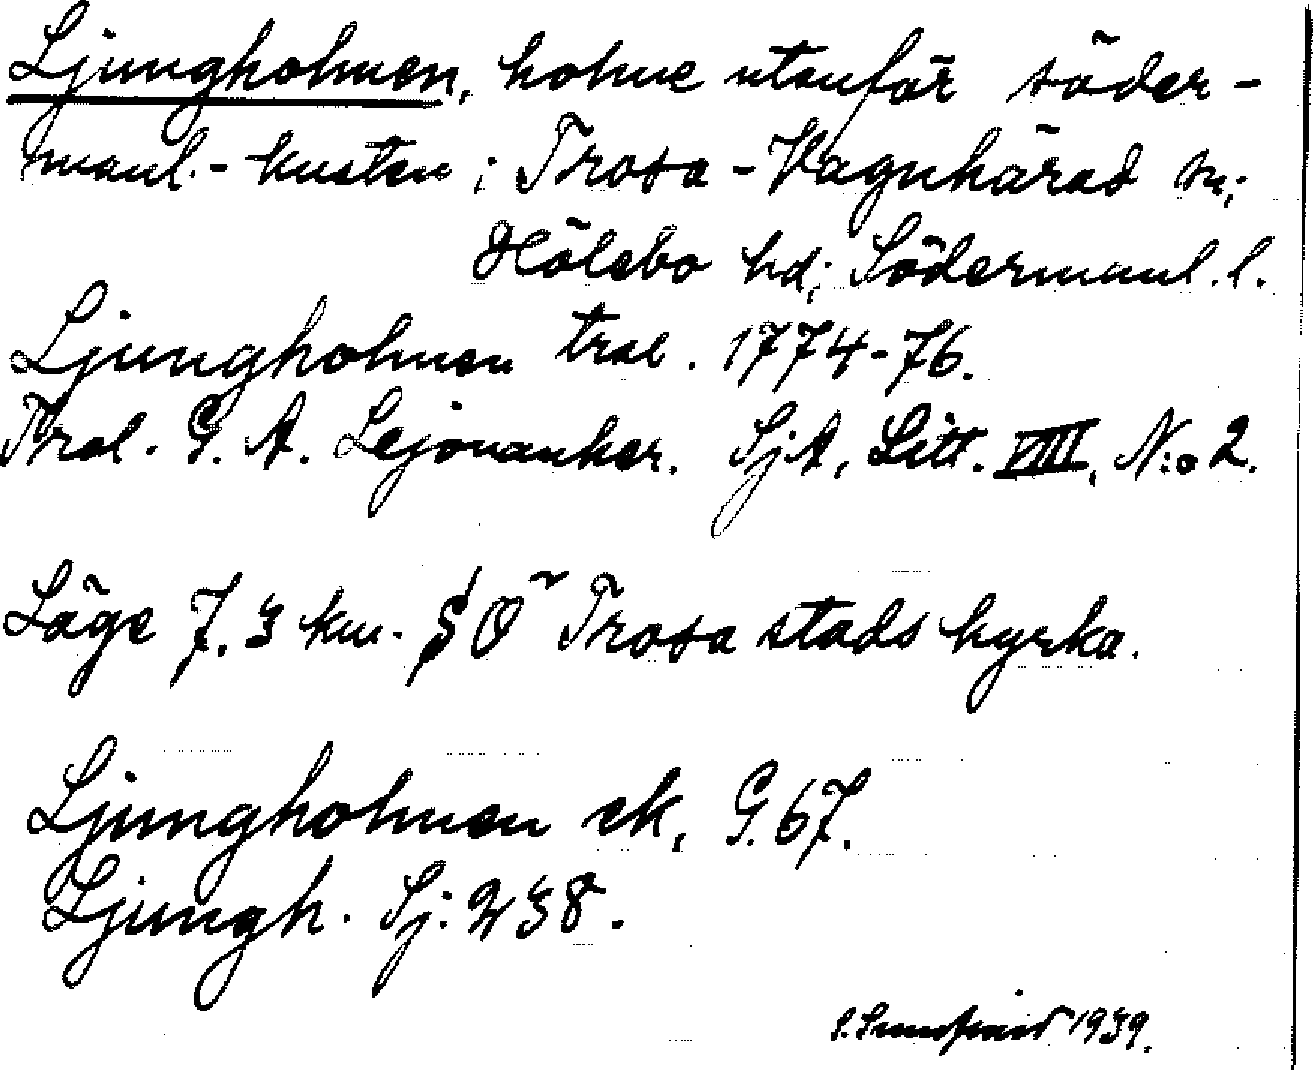 Ljungholmen, holme utanför söder-
manl.-kusten; Trosa-Vagnhärad sn;
Hölebo hd; Södermanl. l.
Ljungholmen trol. 1774-76.
Trol. G. A. Lejonanker. SjA, Litt. VIII, N:o 2.
Läge 7.3 km. SO Trosa stads kyrka.
Ljungholmen ek, G. 67.
Ljungh. Sj: 238.
1939.